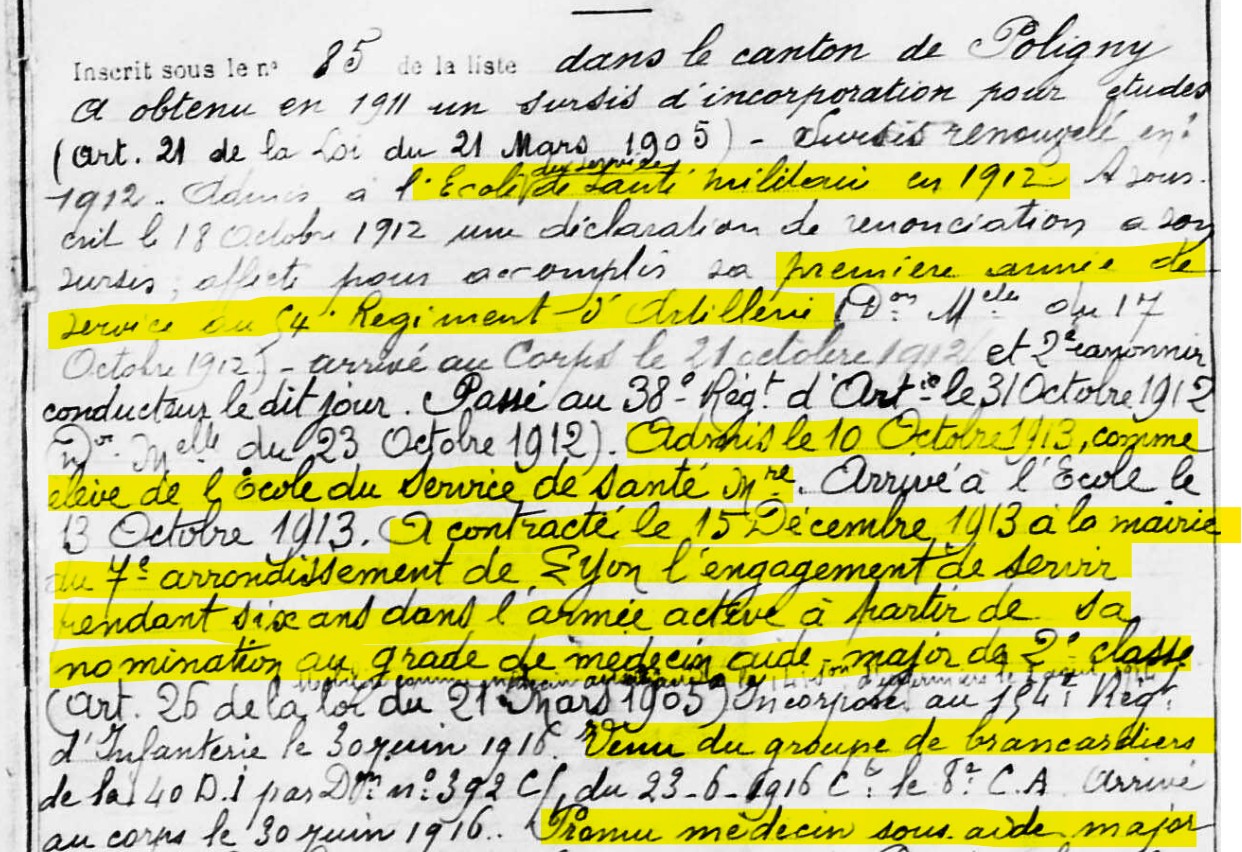 Inscrit sous le n° 85 de la liste dans le canton de Poligny
A obtenu en 1911 un sursis d'incorporation pour études
(art. 21 de la Loi du 21 Mars 1905) - Sursis renouvelé en
1912. Admis à l'Ecole du service de Santé militaire en 1912. A sous-
crit le 18 Octobre 1912 une déclaration de renonciation a son
sursis, affecté pour accomplir sa première année de
service au 54e Régiment d'Artillerie (Don Melle du 17
Octobre 1912) - arrivé au Corps le 21 octobre 1912 et 2e canonnier
conducteur le dit jour. Passé au 38e Régt d'Artie le 31 Octobre 1912
(Don Melle du 23 Octobre 1912). Admis le 10 Octobre 1913, comme
elève de l'Ecole du Service de Santé Mre. Arrivé à l'Ecole le
13 Octobre 1913. A contracté le 15 Décembre 1913 à la mairie
du 7e arrondissement de Lyon l'engagement de servir
pendant six ans dans l'armée active à partir de sa
nomination au grade de médecin aide-major de 2e classe
médecin auxiliaire le
(art. 26 de la loi du 21 Mars 1905) Incorporé au 154e Régt
d'Infanterie le 30 juin 1916. Venu du groupe de brancardiers
de la 40 D.I par Don n° 392 C/ du 23-6-1916 Ct le 8e C.A Arrivé
au corps le 30 juin 1916. Promu médecin sous-aide major